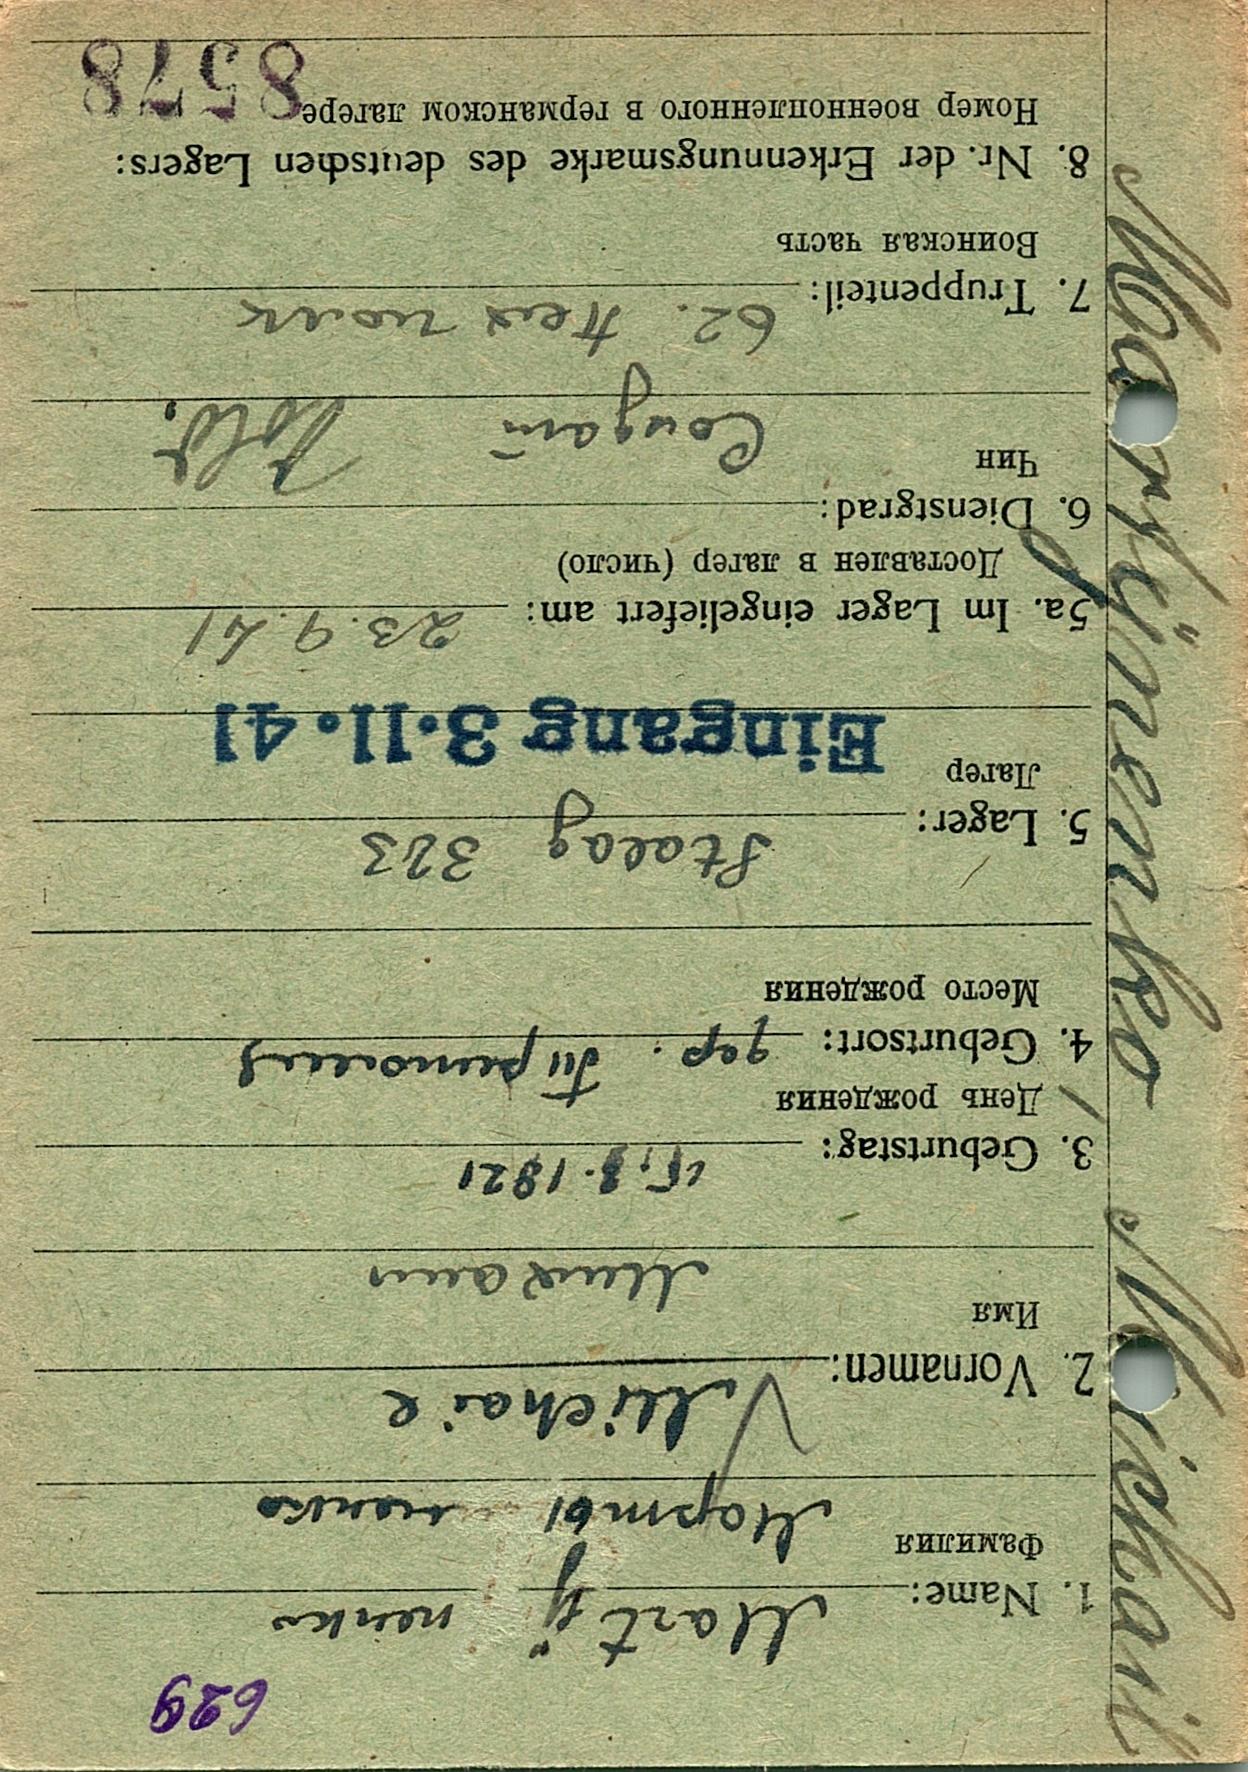 629
1. Name: Martÿnenko
Фамилия Мартыненко
2. Vornamen: Michail
Имя Михаил
3. Geburtstag:
День рождения
4. Geburtsort: дер.
Место рождения
5. Lager: Stalag 323
Лагер
Eingang 3·11·41
5a. Im Lager eingeliefert am: 23.9.41
Доставлен в лагер (число)
6. Dienstgrad:
Чин Солдат Sold.
7. Truppenteil: 62. полк
Воинская часть
8. Nr. der Erkennungsmarke des deutschen Lagers:
Номер военнопленного в германском лагере 8578
Martÿnenko Michail